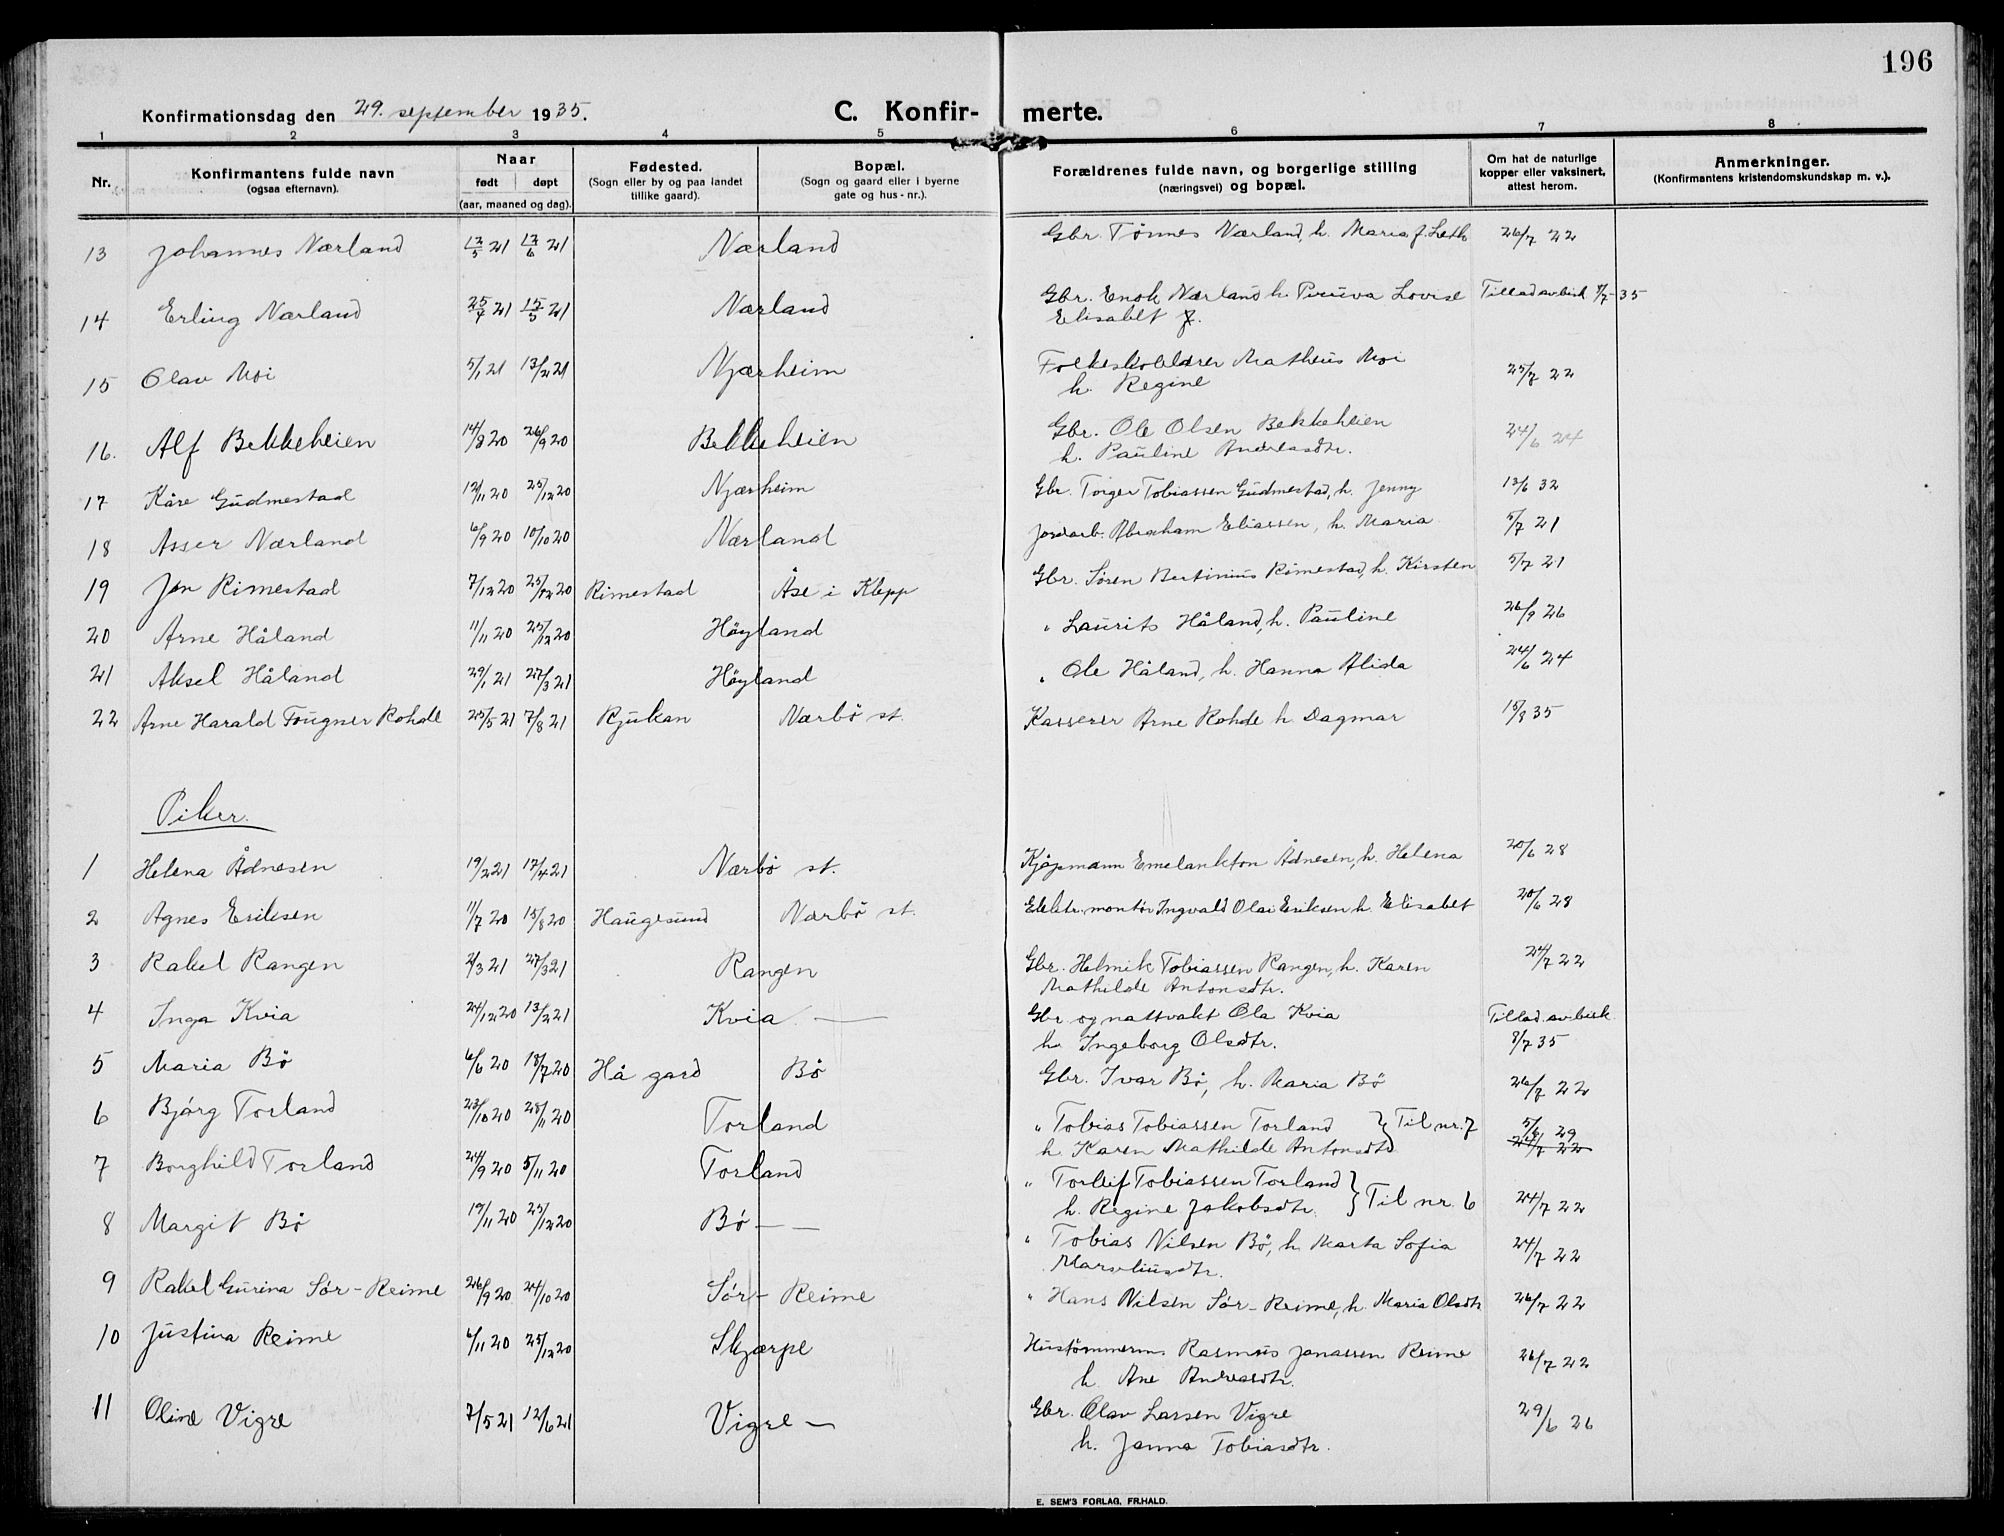 196
Konfirmationsdag den 29. september 1935. C. Konfir- merte.
1 2 3 4 5 6 7 8
Nr. Konfirmantens fulde navn (ogsaa efternavn). Naar født døpt (aar, maaned og dag). Fødested. (Sogn eller by og paa landet tillike gaard). Bopæl. (Sogn og gaard eller i byerne gate og hus-nr.). Forældrenes fulde navn, og borgerlige stilling (næringsvei) og bopæl. Om hat de naturlige kopper eller vaksinert, attest herom. Anmerkninger. (Konfirmantens kristendomskundskap m. v.).
13 Johannes Nærland 12/5 21 12/6 21 Nærland Gbr. Tønnes Nærland, h. Maria f. Leth 26/7 22
14 Erling Nærland 21 21 Nærland Gbr. Enok Nærland h. Lovise Tillad av bisk. 8/7-35
Elisabet f.
15 Olav Moi 5/1 21 13/2 21 Njærheim Folkeskolelærer Matheus Moi
h. Regine 25/7 22
16. Alf Bekkeheien 14/8 20 26/9 20 Bekkeheien Gbr. Ole Olsen Bekkeheien 24/6 24
h. Pauline Andreasdtr.
17 Kåre Gudmestad 12/11 20 25/12 20 Njærheim Gbr. Torger Tobiassen Gudmestad, h. Jenny 13/6 32
18 Asser Nærland 6/9 20 10/10 20 Nærland Jordarb. Abraham Eliassen, h. Maria 5/7 21
19 Jon Rimestad 7/12 20 25/12 20 Rimestad Åse i Klepp Gbr. Søren Bertinius Rimestad, h. Kirsten 5/7 21
20 Arne Håland 11/11 20 25/12 20 Høyland " Laurits Håland, h. Pauline 26/9 26
21 Aksel Håland 29/1 21 27/3 21 Høyland " Ole Håland, h. Hanna Alida 24/6 24
22 Arne Harald Fougner Rohde 25/5 21 7/8 21 Rjukan Nærbø st. Kasserer Arne Rohde h. Dagmar 15/8 35
Piker.
1 Helena Ådnesen 19/2 21 17/4 21 Nærbø st. Kjøpmann Emelankton Ådnesen, h. Helena 20/6 28
2 Agnes Eriksen 11/7 20 15/8 20 Haugesund Nærbø st. Elektr. montør Ingvald Olai Eriksen h. Elisabet 20/6 28
3 Rakel Rangen 2/3 21 27/3 21 Rangen Gbr. Helmik Tobiassen Rangen, h. Karen 24/7 22
Mathilde Antonsdtr.
4 Inga Kvia 24/12 20 13/2 21 Kvia — Gbr. og nattvakt Ola Kvia Tillad. av bisk.
h. Ingeborg Olsdtr. 8/7 35
5 Maria Bø 6/6 20 18/7 20 Hå gard Bø Gbr. Ivar Bø, h. Maria Bø 26/7 22
6 Bjørg Torland 23/10 20 28/11 20 Torland " Tobias Tobiassen Torland } Til nr. 7 5/6 29
h. Karen Mathilde Antonsdtr 24/7 22
7 Borghild Torland 24/9 20 5/11 20 Torland " Torleif Tobiassen Torland
h. Regine Jakobsdtr. } Til nr. 6 24/7 22
8 Margit Bø 19/11 20 25/12 20 Bø — — " Tobias Nilsen Bø, h. Marta Sofia 24/7 22
Mareliusdtr.
9 Rakel Gurina Sør-Reime 26/9 20 24/10 20 Sør-Reime " Hans Nilsen Sør-Reime, h. Maria Olsdtr 26/7 22
10 Justina Reime 6/11 20 25/12 20 Skjærpe Hustømmerm. Rasmus Jonassen Reime 26/7 22
h. Ane Andreasdtr.
11 Oline Vigre 7/5 21 12/6 21 Vigre — Gbr. Olav Larsen Vigre 29/6 26
h. Janna Tobiasdtr.
E. SEM'S FORLAG, FR.HALD.